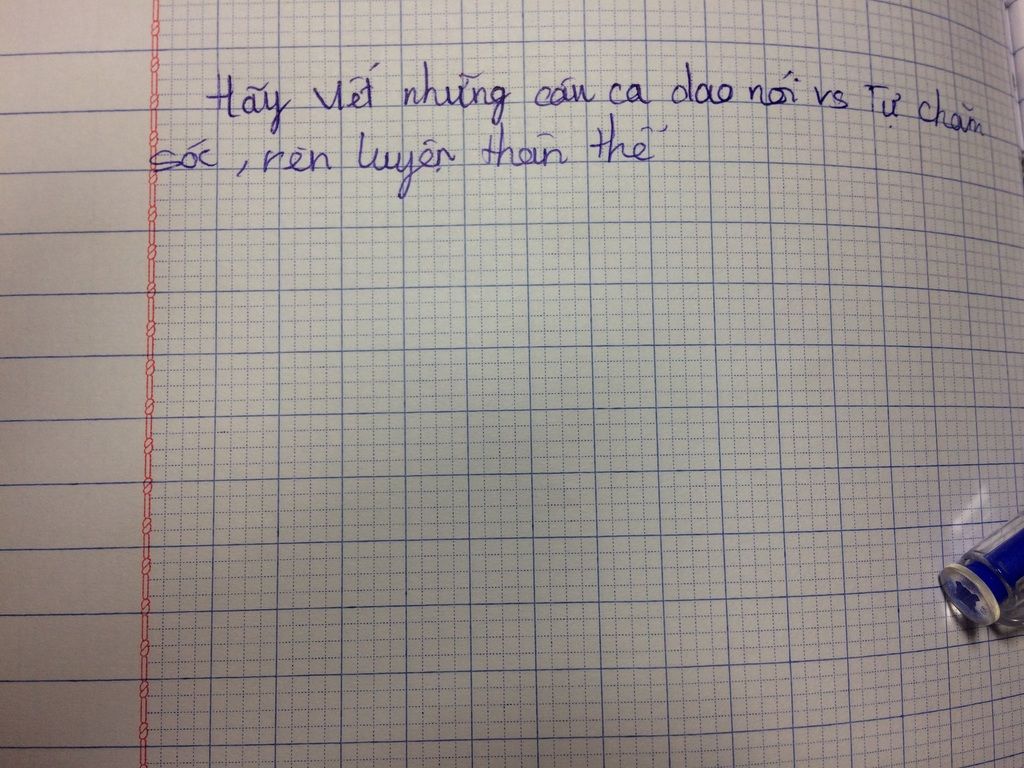 Hãy viết những câu ca dao nói vs Tự chăm
sóc, rèn luyện thân thể